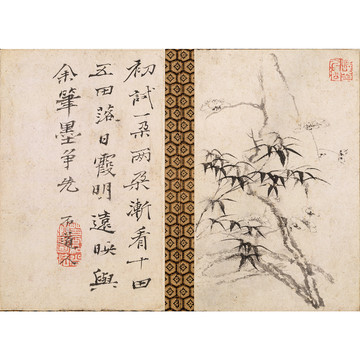 初試一朵兩朵漸看十田
五田落日霞明遠映與
余筆墨爭先